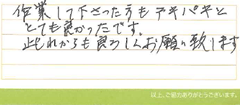 作業して下さった方もテキパキと
とても良かったです。
これからも宜ろしくお願い致します
以上、ご協力ありがとうございます。